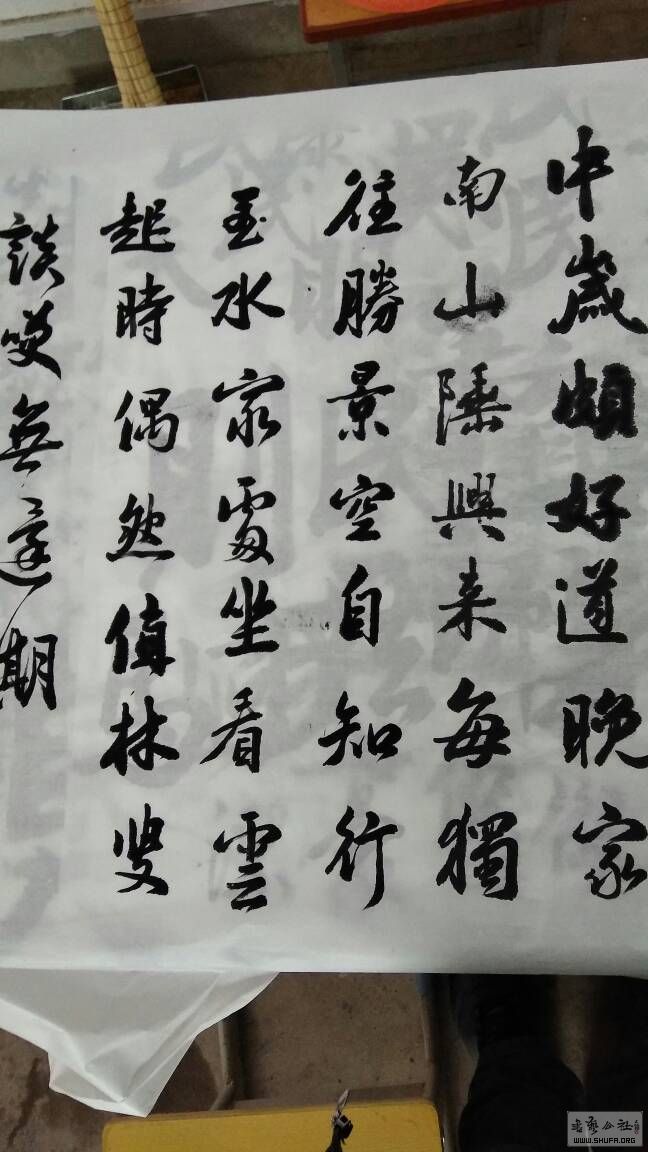 中歲頗好道晚家
南山陲興来每獨
往勝景空自知行
至水處坐看雲
起時偶然值林叟
談咲無還期
書藝公社
WWW.SHUFA.ORG